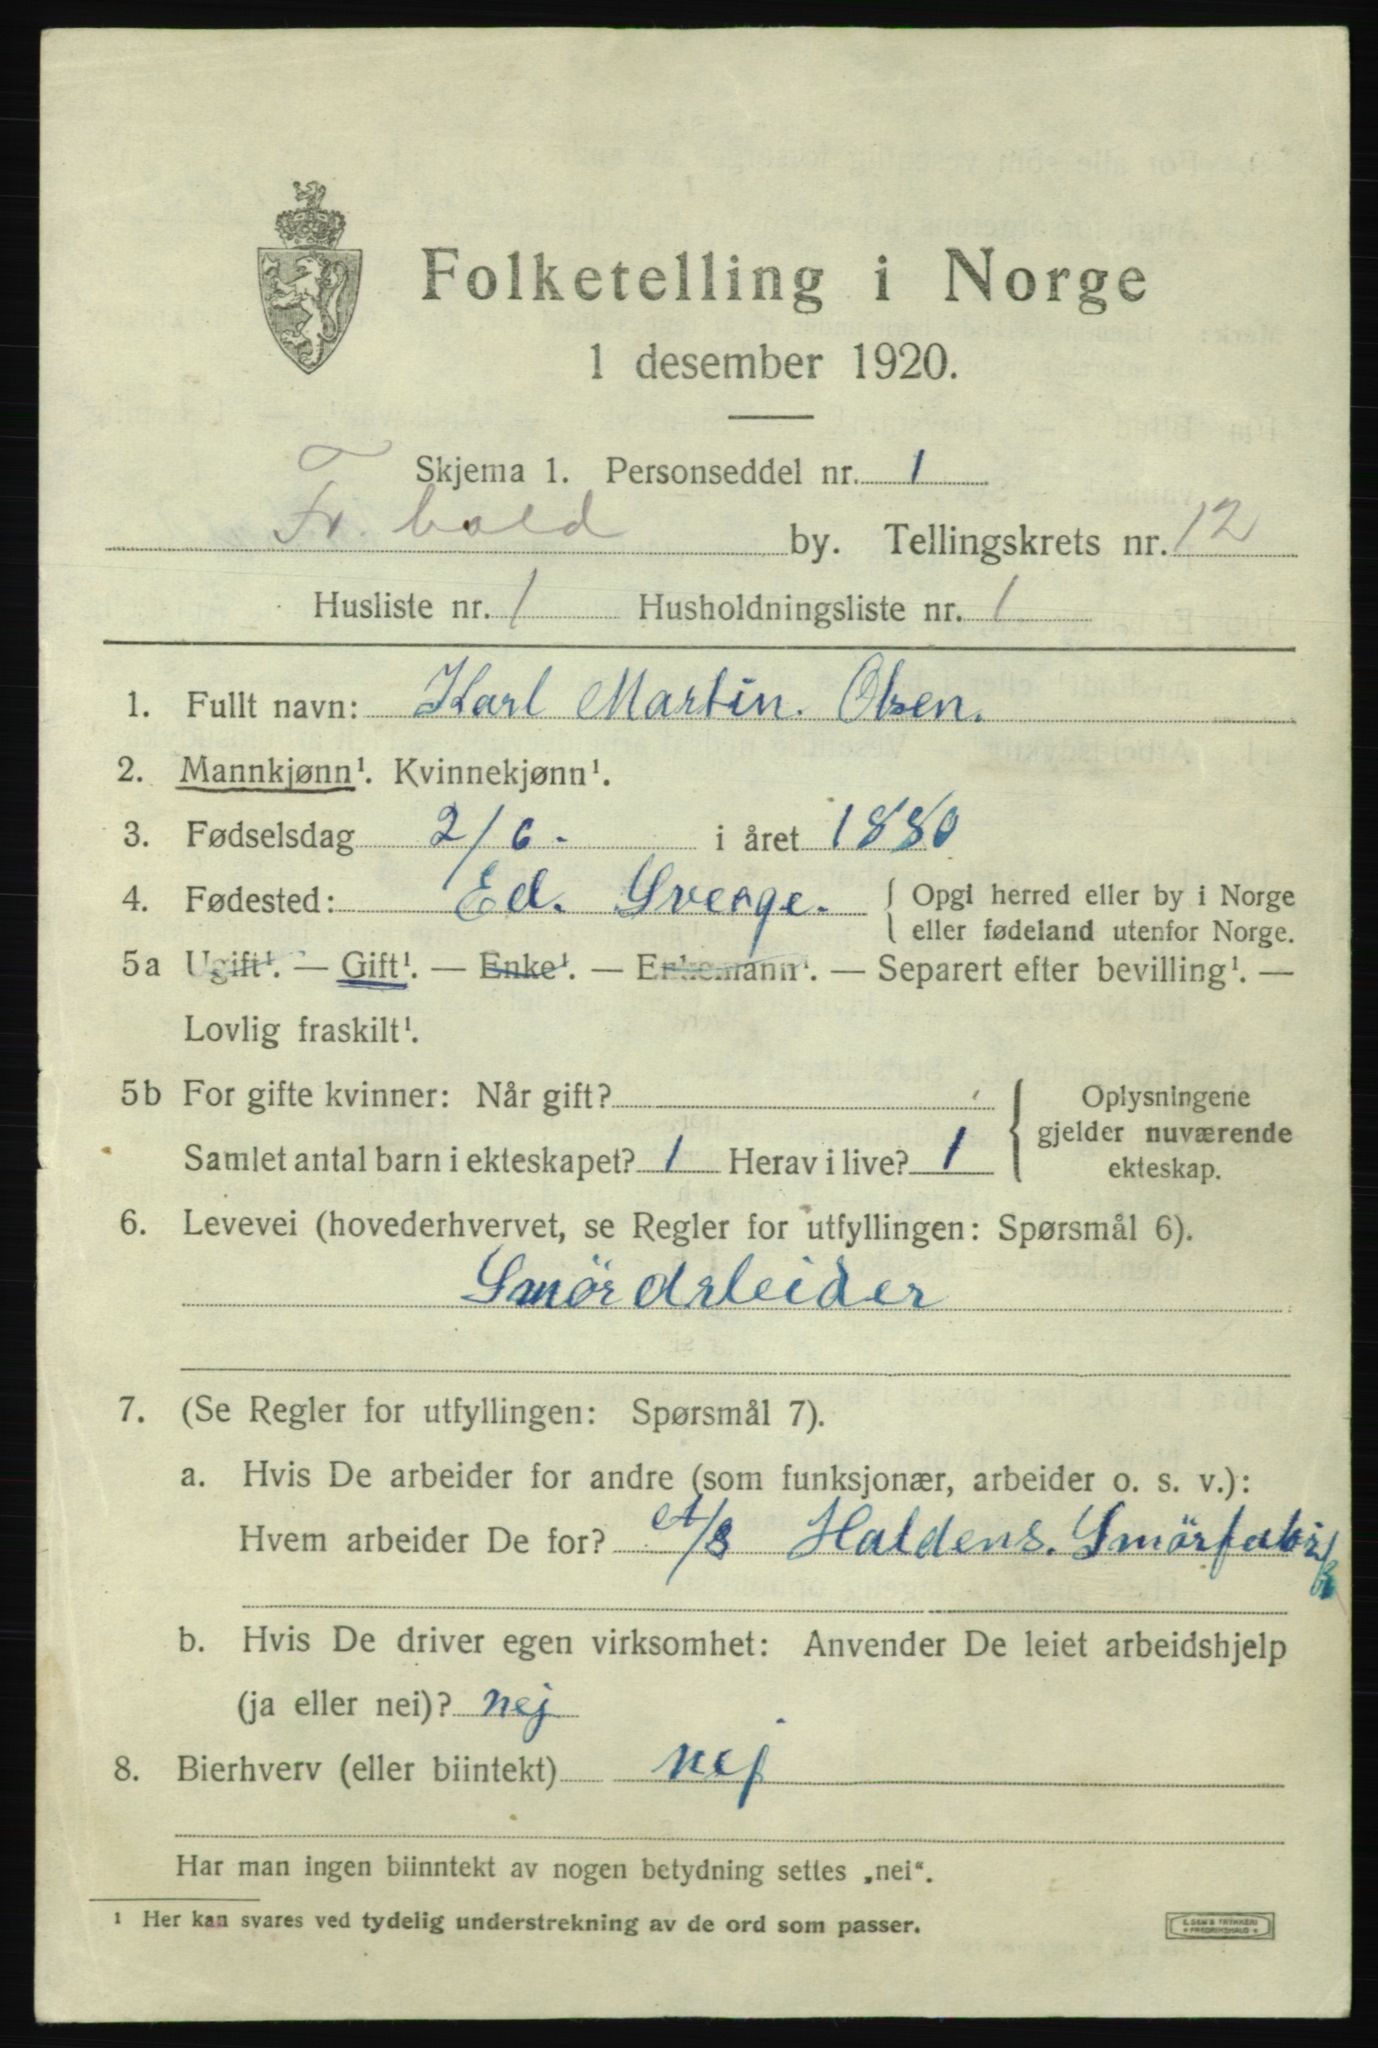 Folketelling i Norge
1 desember 1920.
Skjema 1. Personseddel nr. 1
Fr. hald by. Tellingskrets nr. 12
Husliste nr. 1 Husholdningsliste nr. 1
1. Fullt navn: Karl Martin. Olsen.
2. Mannkjønn¹. Kvinnekjønn¹.
3. Fødselsdag 2/6. i året 1880
4. Fødested: Ed. Sverge. { Opgi herred eller by i Norge
eller fødeland utenfor Norge.
5a Ugift¹. — Gift¹. — Enke¹. — Enkemann¹. — Separert efter bevilling¹. —
Lovlig fraskilt¹.
5b For gifte kvinner: Når gift? { Oplysningene
gjelder nuværende
Samlet antal barn i ekteskapet? 1 Herav i live? 1
ekteskap.
6. Levevei (hovederhvervet, se Regler for utfyllingen: Spørsmål 6).
Smördrleider
7. (Se Regler for utfyllingen: Spørsmål 7).
a. Hvis De arbeider for andre (som funksjonær, arbeider o. s. v.):
Hvem arbeider De for? A/S Haldens. Smörfabrik
b. Hvis De driver egen virksomhet: Anvender De leiet arbeidshjelp
(ja eller nei)? nej
8. Bierhverv (eller biintekt) nej
Har man ingen biinntekt av nogen betydning settes „nei“.
¹ Her kan svares ved tydelig understrekning av de ord som passer.
E. SEM'S TRYKKERI
FREDRIKSHALD